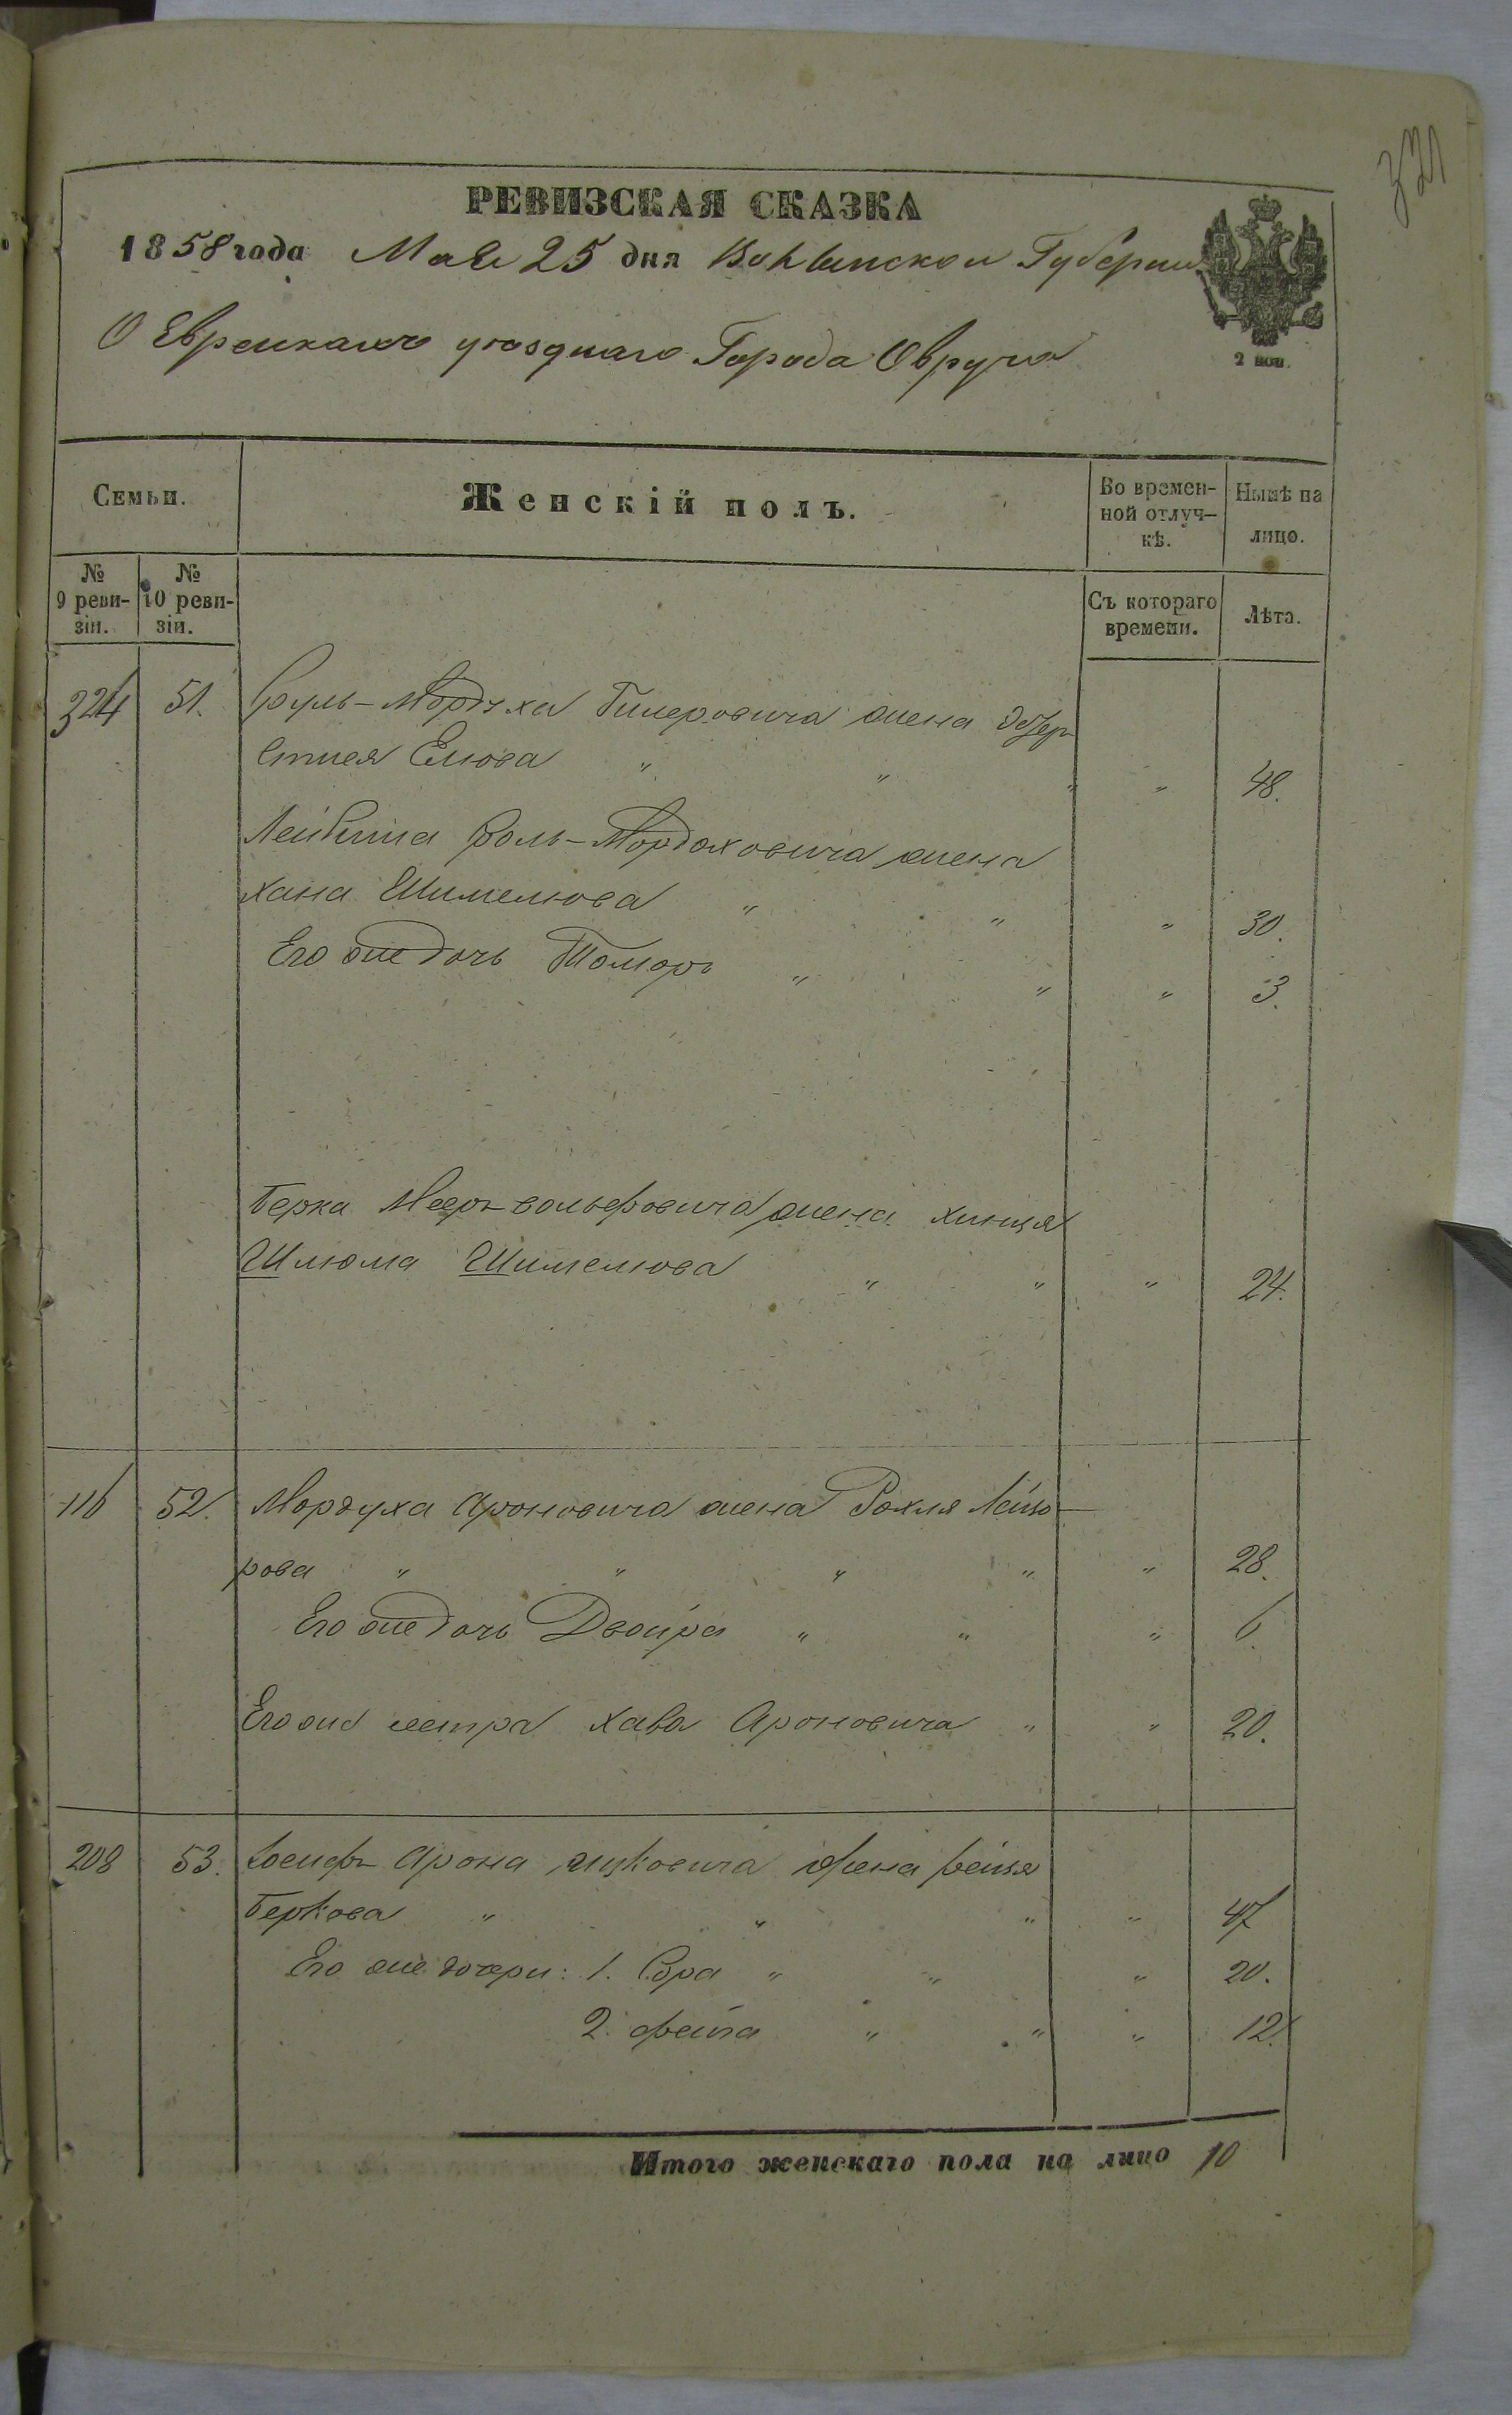 321
РЕВИЗСКАЯ СКАЗКА
1858 года Мая 25 дня Волынской Губернии
О Евреикахъ уезднаго Города Овруча
2 коп.
Семьи. Женскій полъ. Во времен- Нынѣ на
ной отлуч- лицо.
кѣ.
№ № Съ котораго Лѣта.
9 реви- 10 реви- времени.
зіи. зіи.
324 51. Сруль-Мордуха Гилеровича жена
Елюва " " " " 48.
Лейбиша Сроль-Мордоховича жена
Хана Шимелюва " " " 30.
Его же дочь Томоръ " " " 3.
Берка Меер-Вольфовича жена
Шлюма Шимелюва " " " 24.
116 52. Мордуха Ароновича жена Рохля Лейзо-
рова " " " " " 28.
Его же дочь Двойра " " " 6.
Его же сестра Хава Ароновича " " 20.
208 53. Иосифъ Арона Ицковича жена Бейля
Беркова " " " " 47
Его же дочери: 1. Сора " " " 20.
2. Фейга " " " 12.
Итого женскаго пола на лицо 10